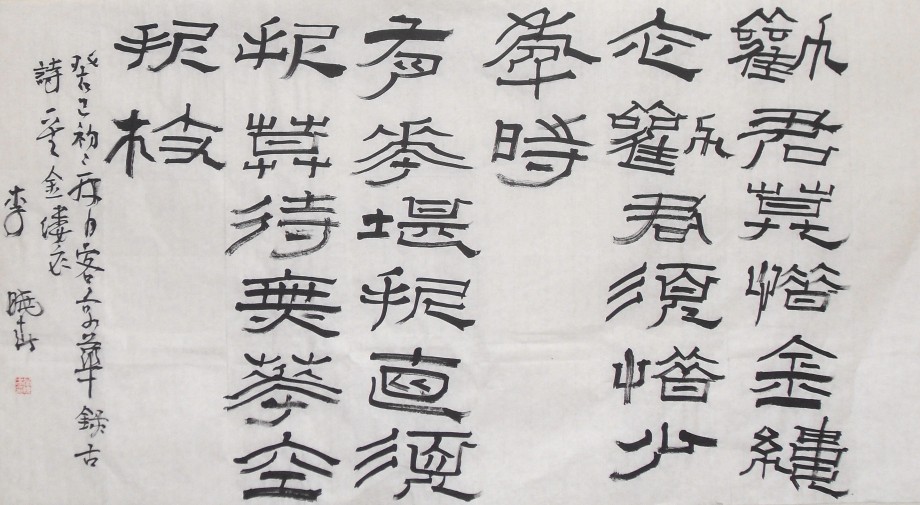 勸君莫惜金縷
衣勸君須惜少
年時
有花堪折直須
折莫待無華空
折枝
癸巳初月客京華錄古
詩一金縷衣
李曉